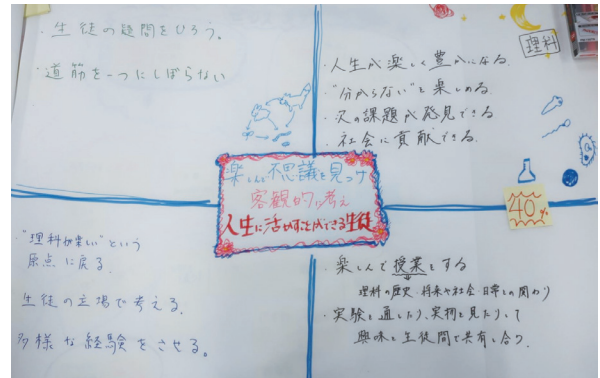 ・生徒の疑問をひろう。
・道筋を一つにしぼらない
理科
・人生が楽しく豊かになる。
・"分からない"を楽しめる。
・次の課題が発見できる
・社会に貢献できる。
楽しんで不思議を見つけ
客観的に考え
人生に活かすことができる生徒
40%
"理科が楽しい"という
原点に戻る。
生徒の立場で考える。
多様な経験をさせる。
・楽しんで授業をする
理科の歴史・将来や社会・日常との関わり
・実験を通したり、実物を見たりして
興味を生徒間で共有し合う。